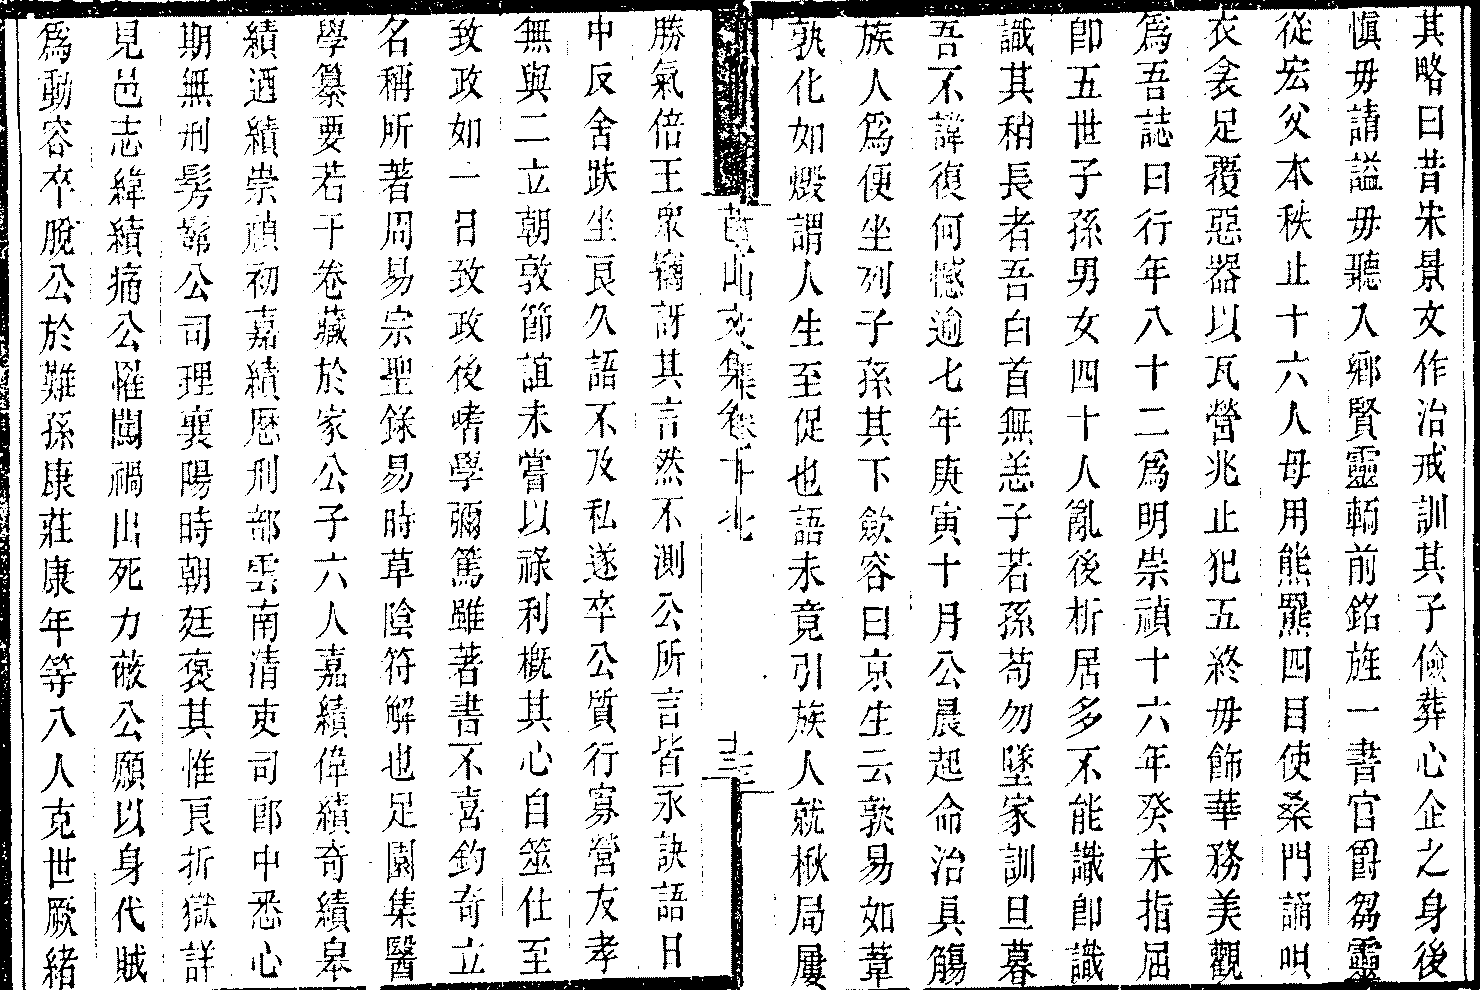 其略曰昔朱景文作治戒訓其子儉葬心企之身後
慎毋請謚毋聽入鄉賢靈輀前銘旌一書官爵芻靈
從宏父本秩止十六人毋用熊羆四目使桑門誦唄
衣衾足覆惡器以瓦營兆止犯五終毋飾華務美觀
為吾誌曰行年八十二為明崇禎十六年癸未指屈
卽五世子孫男女四十人亂後析居多不能識卽識
識其稍長者吾白首無恙子若孫苟勿墜家訓旦暮
吾不諱復何憾逾七年庚寅十月公晨起命治具觴
族人為便坐列子孫其下斂容曰京生云孰易如葦
孰化如燬謂人生至促也語未竟引族人就楸局屢
文集卷十九
十三
勝氣倍王眾竊訝其言然不測公所言皆永訣語日
中反舍趺坐良久語不及私遂卒公質行寡營友孝
無與二立朝敦節誼未嘗以祿利概其心自筮仕至
致政如一日致政後嗜學彌篤雖著書不喜釣奇立
名稱所著周易宗聖錄易時草陰符解也足園集醫
學纂要若干卷藏於家公子六人嘉績偉績奇績皋
績迺績崇禎初嘉績歷刑部雲南清吏司郎中悉心
期無刑髣髴公司理襄陽時朝廷褒其惟良折獄詳
見邑志緯績痛公罹闖禍出死力蔽公願以身代賊
為動容卒脫公於難孫康莊康年等八人克世厥緒